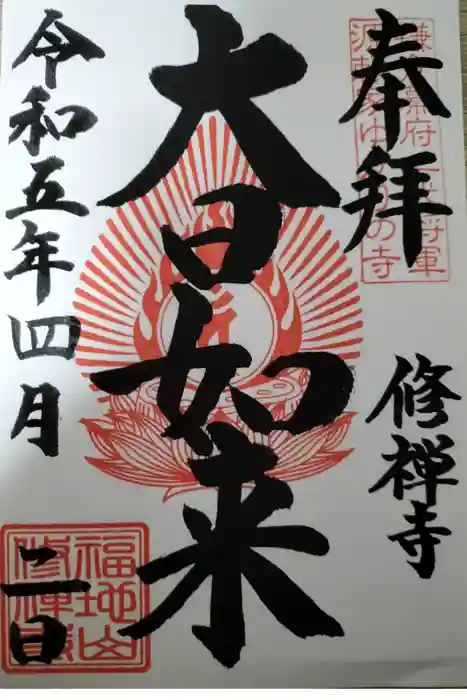 奉拝
鎌倉幕府二代将軍
源頼家ゆかりの寺
修禅寺
大日如来
令和五年四月
二日
福地山
修禅寺